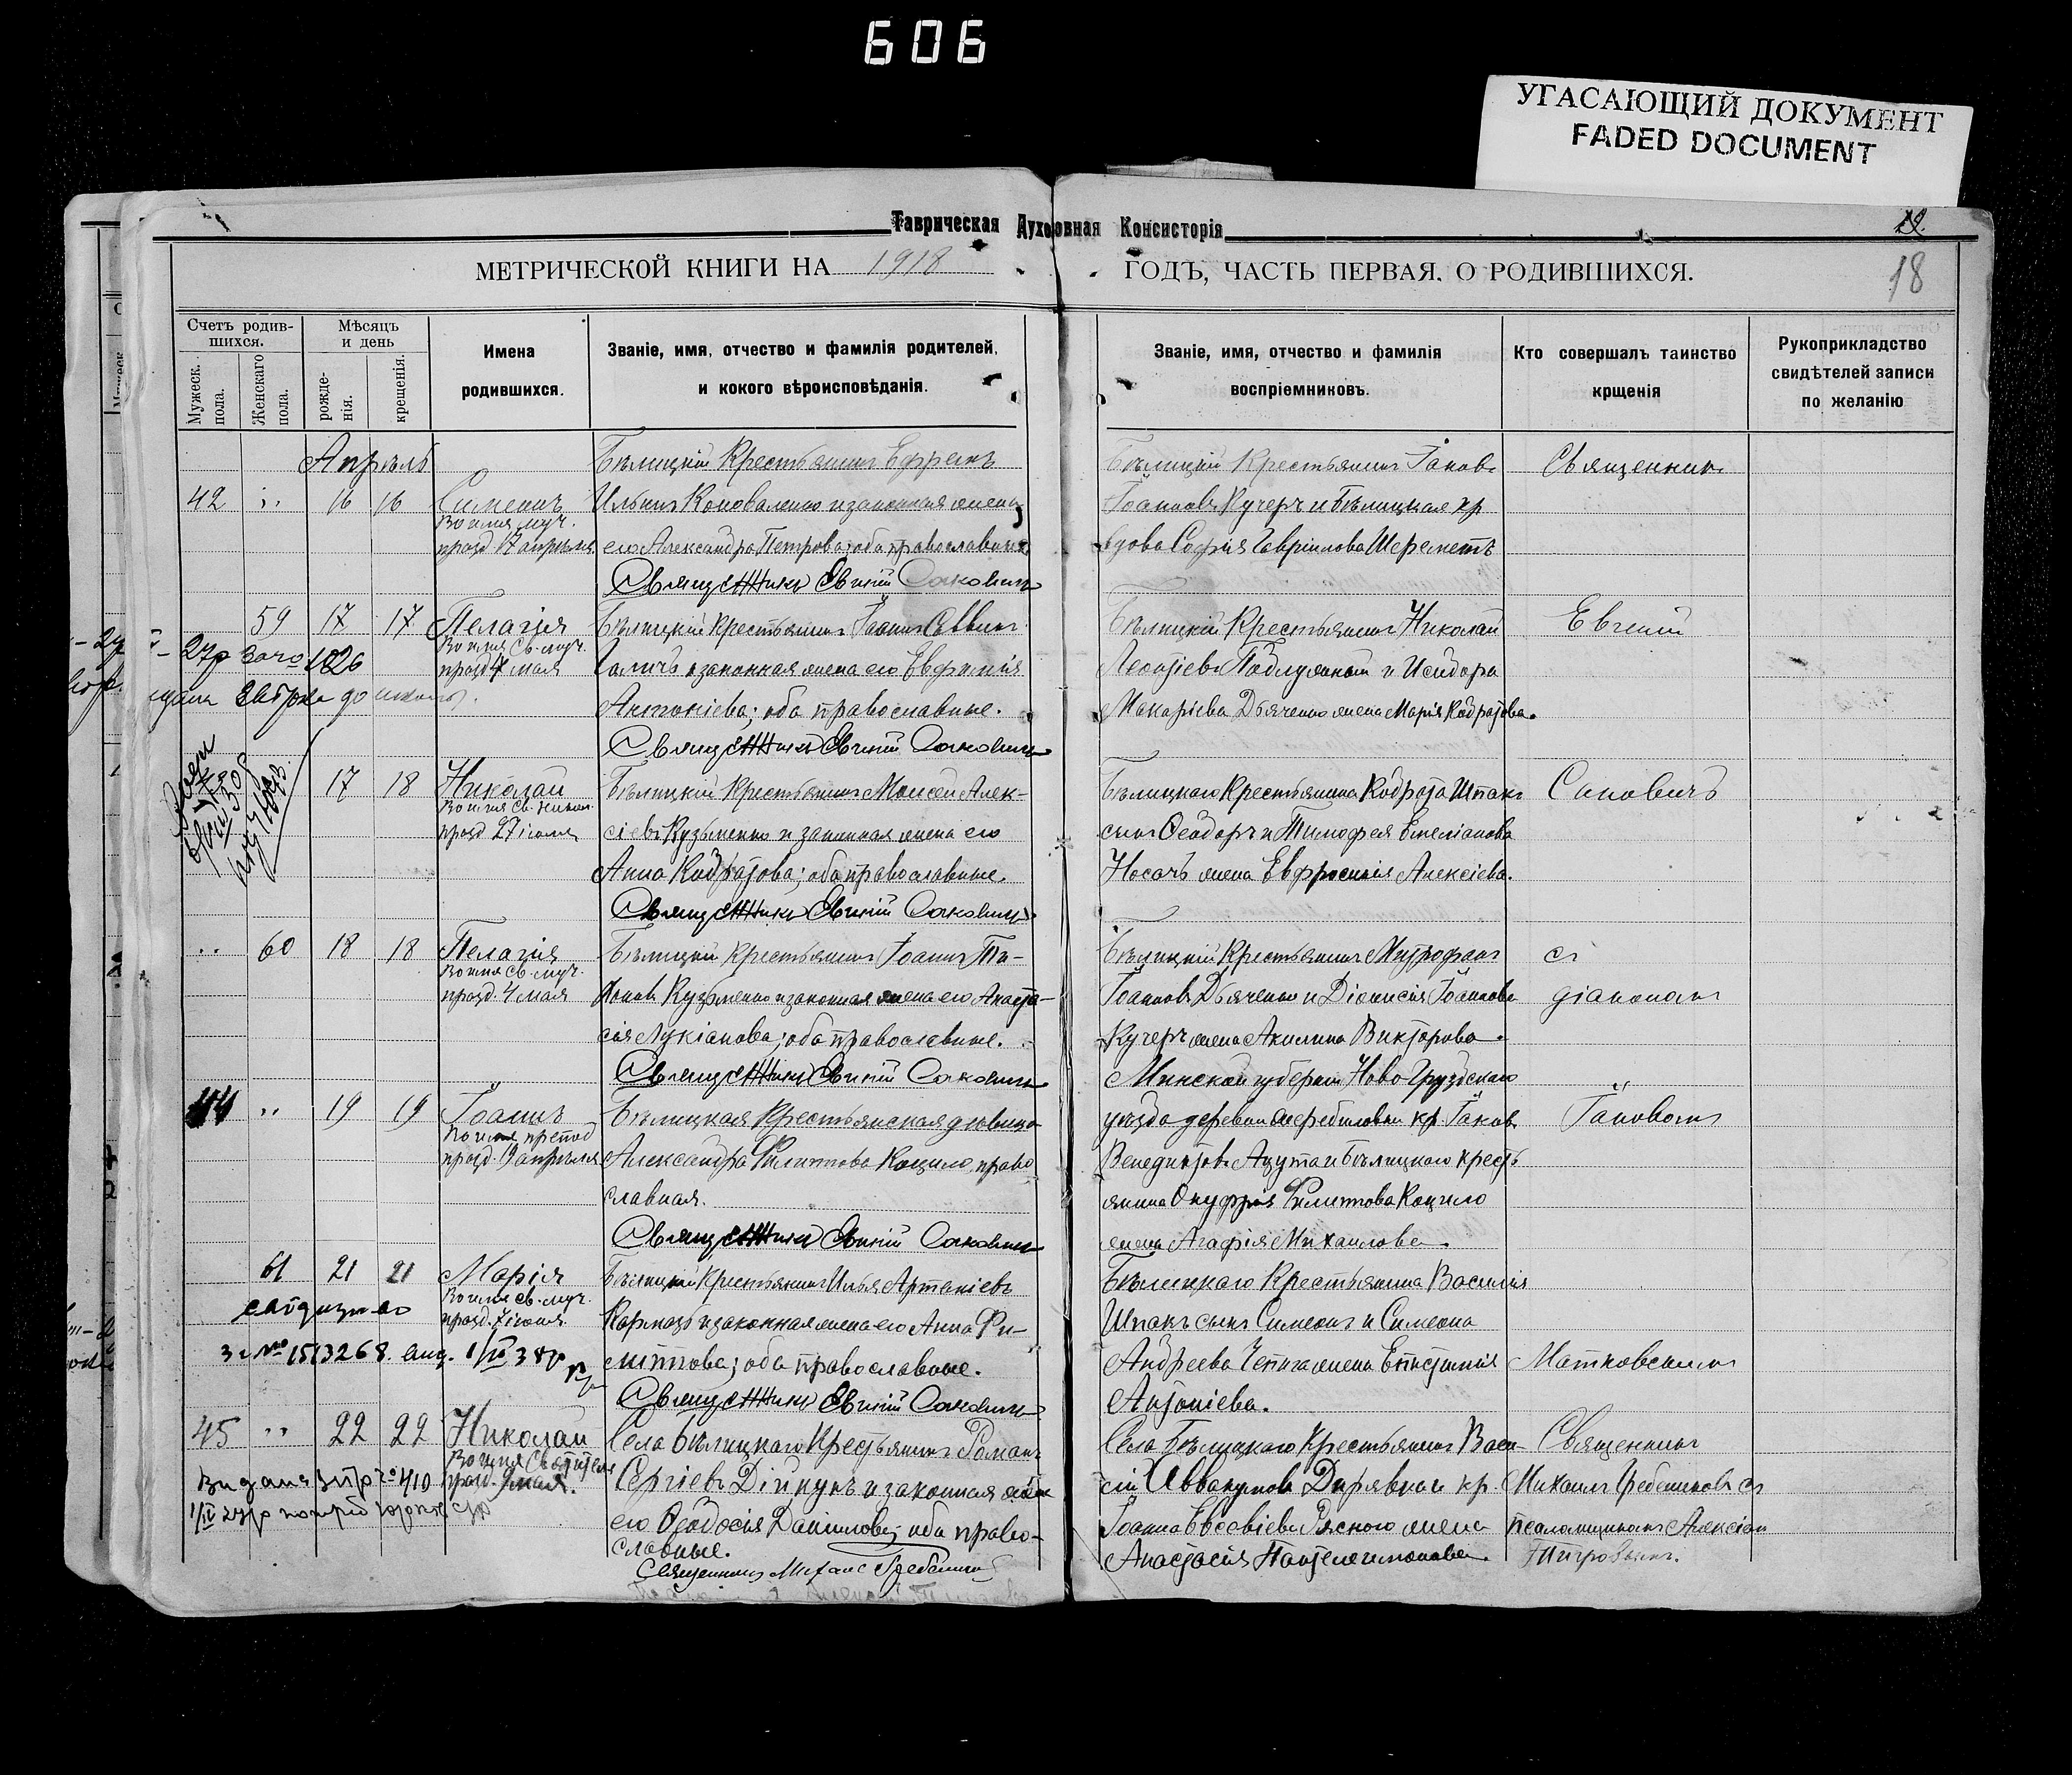 606
УГАСАЮЩИЙ ДОКУМЕНТ
FADED DOCUMENT
Таврическая Духовная Консисторія
МЕТРИЧЕСКОЙ КНИГИ НА 1918 ГОДЪ, ЧАСТЬ ПЕРВАЯ, О РОДИВШИХСЯ.
18
Счетъ родив-
шихся.
Мужеск. пола.
Женскаго пола.
Мѣсяцъ и день
рожде-
нія.
крещенія.
Имена
родившихся.
Званіе, имя, отчество и фамилія родителей,
и кокого вѣроисповѣданія.
Званіе, имя, отчество и фамилія
воспріемниковъ.
Кто совершалъ таинство
крщенія
Рукоприкладство
свидѣтелей записи
по желанію
Апрѣль
42 16 16 Симеонъ
Во имя муч.
празд. 17 апрѣля
Бѣлицкій крестьянинъ Ефремъ
Ильинъ Коноваленко и законная жена
его Александра Петрова; оба православные.
Священникъ Евгеній Саковичъ
Бѣлицкій крестьянинъ Іаковъ
Іоанновъ Кучеръ и Бѣлицкая кр.
вдова Софія Гавріилова Шереметъ
Священникъ
59 17 17 Пелагія
Во имя св. муч.
празд. 4 мая
Бѣлицкій крестьянинъ Іоаннъ Саввинъ
Галичъ и законная жена его Евфимія
Антоніева; оба православные.
Священникъ Евгеній Саковичъ
Бѣлицкій крестьянинъ Николай
Леонтіевъ и Исидора
Макаріева Дьяченко жена Марія Кодратова.
Евгеній
17 18 Николай
празд. 27 іюля
Бѣлицкій крестьянинъ Моисей Алек-
сіевъ Кузьменко и законная жена его
Анна Кодратова; оба православные.
Священникъ Евгеній Саковичъ
Бѣлицкаго крестьянина Кодрата Шпакъ
сынъ Ѳеодоръ и Тимофея Емеліанова
Носачъ жена Евфросинія Алексіева.
Саковичъ
60 18 18 Пелагія
Во имя св. муч.
празд. 4 мая
Бѣлицкій крестьянинъ Іоаннъ Ти-
хоновъ Кузьменко и законная жена его Анаста-
сія Лукіанова; оба православные.
Священникъ Евгеній Саковичъ
Бѣлицкій крестьянинъ Митрофанъ
Іоанновъ Дьяченко и Діонисія Іоаннова
Кучеръ жена Акилина Викторова.
съ
діакономъ
44 19 19 Іоаннъ
Во имя препод.
празд. 19 апрѣля
Бѣлицкая крестьянская дѣвица
Александра Филиппова Коцило, право
славная.
Священникъ Евгеній Саковичъ
Минской губерніи Ново
уѣзда деревни кр. Іаковъ
Венедиктовъ Ацута и Бѣлицкаго кресть
янина Онуфрія Филиппова Коцило
жена Агафія Михаилова.
Іаковомъ
61 21 21 Марія
Во имя св. муч.
Бѣлицкій крестьянинъ Илья Артеміевъ
Кормазъ и законная жена его Анна Фи-
липпова; оба православные.
Священникъ Евгеній Саковичъ
Бѣлицкаго крестьянина Василія
Шпакъ сынъ Симеонъ и Симеона
Андреева Чепига жена Епистимія
Антоніева.
Матковскимъ
45 22 22 Николай
Во имя Святителя
празд. 9 мая.
Села Бѣлицкаго крестьянинъ Романъ
Сергіевъ Дійкунъ и законная жена
его Ѳеодосія Даниилова; оба право-
славные.
Священникъ Михаилъ Гребенниковъ
Села Бѣлицкаго крестьянинъ Васи-
лій Аввакумовъ Дирявка и кр.
Іоанна Евсевіева Рясного жена
Анастасія Пантелеимонова.
Священникъ
Михаилъ Гребенниковъ съ
псаломщикомъ Алексіемъ